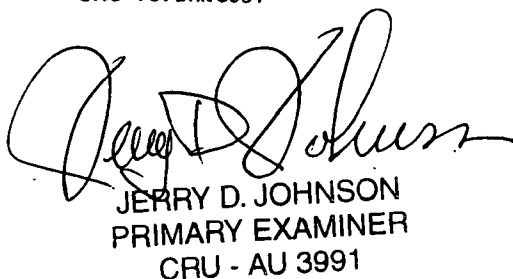 Jerry D Johnson
JERRY D. JOHNSON
PRIMARY EXAMINER
CRU - AU 3991